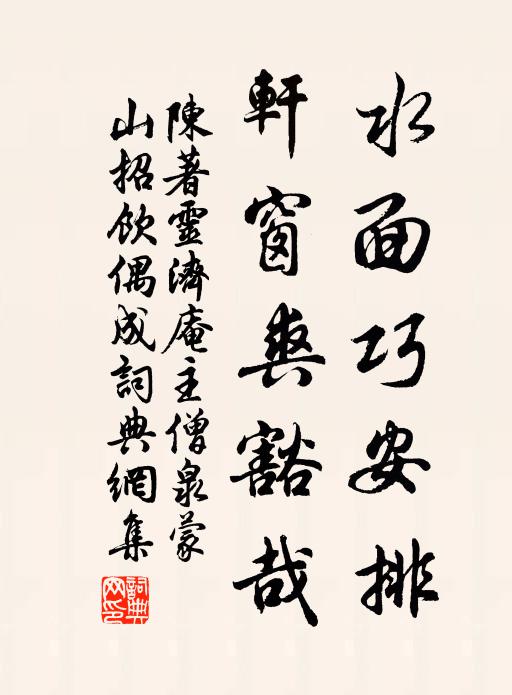 水面巧安排
軒窗爽豁哉
陳著靈濟庵主僧泉蒙
山招飲偶成詞典網集
詞典网印